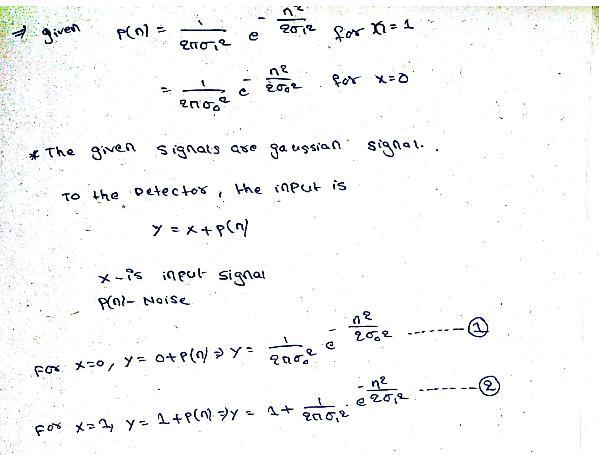 ⇒ given P(n) = 1/2πσ₁² e^-n²/2σ₁² for X = 1
= 1/2πσ₀² e^-n²/2σ₀² for x=0
* The given signals are gaussian signal.
To the Detector, the input is
y = x+p(n)
x-is input signal
P(n)- Noise
For x=0, y= 0+P(n) ⇒ y= 1/2πσ₀² e^-n²/2σ₀² ------- ①
For x=1, y= 1+P(n) ⇒ y= 1+ 1/2πσ₁² e^-n²/2σ₁² ------- ②